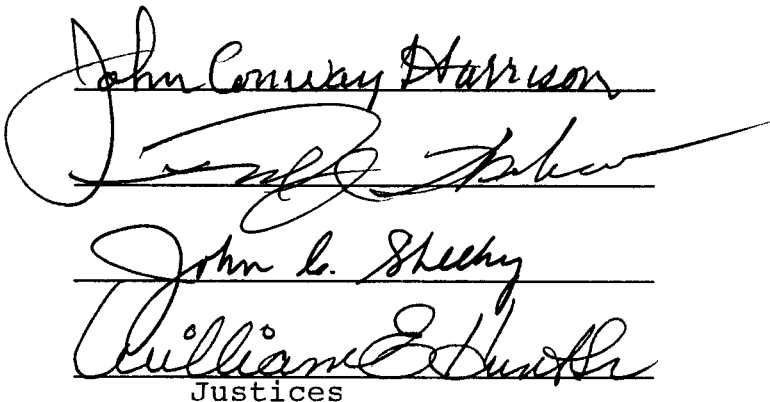 John Conway Harrison
John C. Sheehy
William E Hunt Sr
Justices